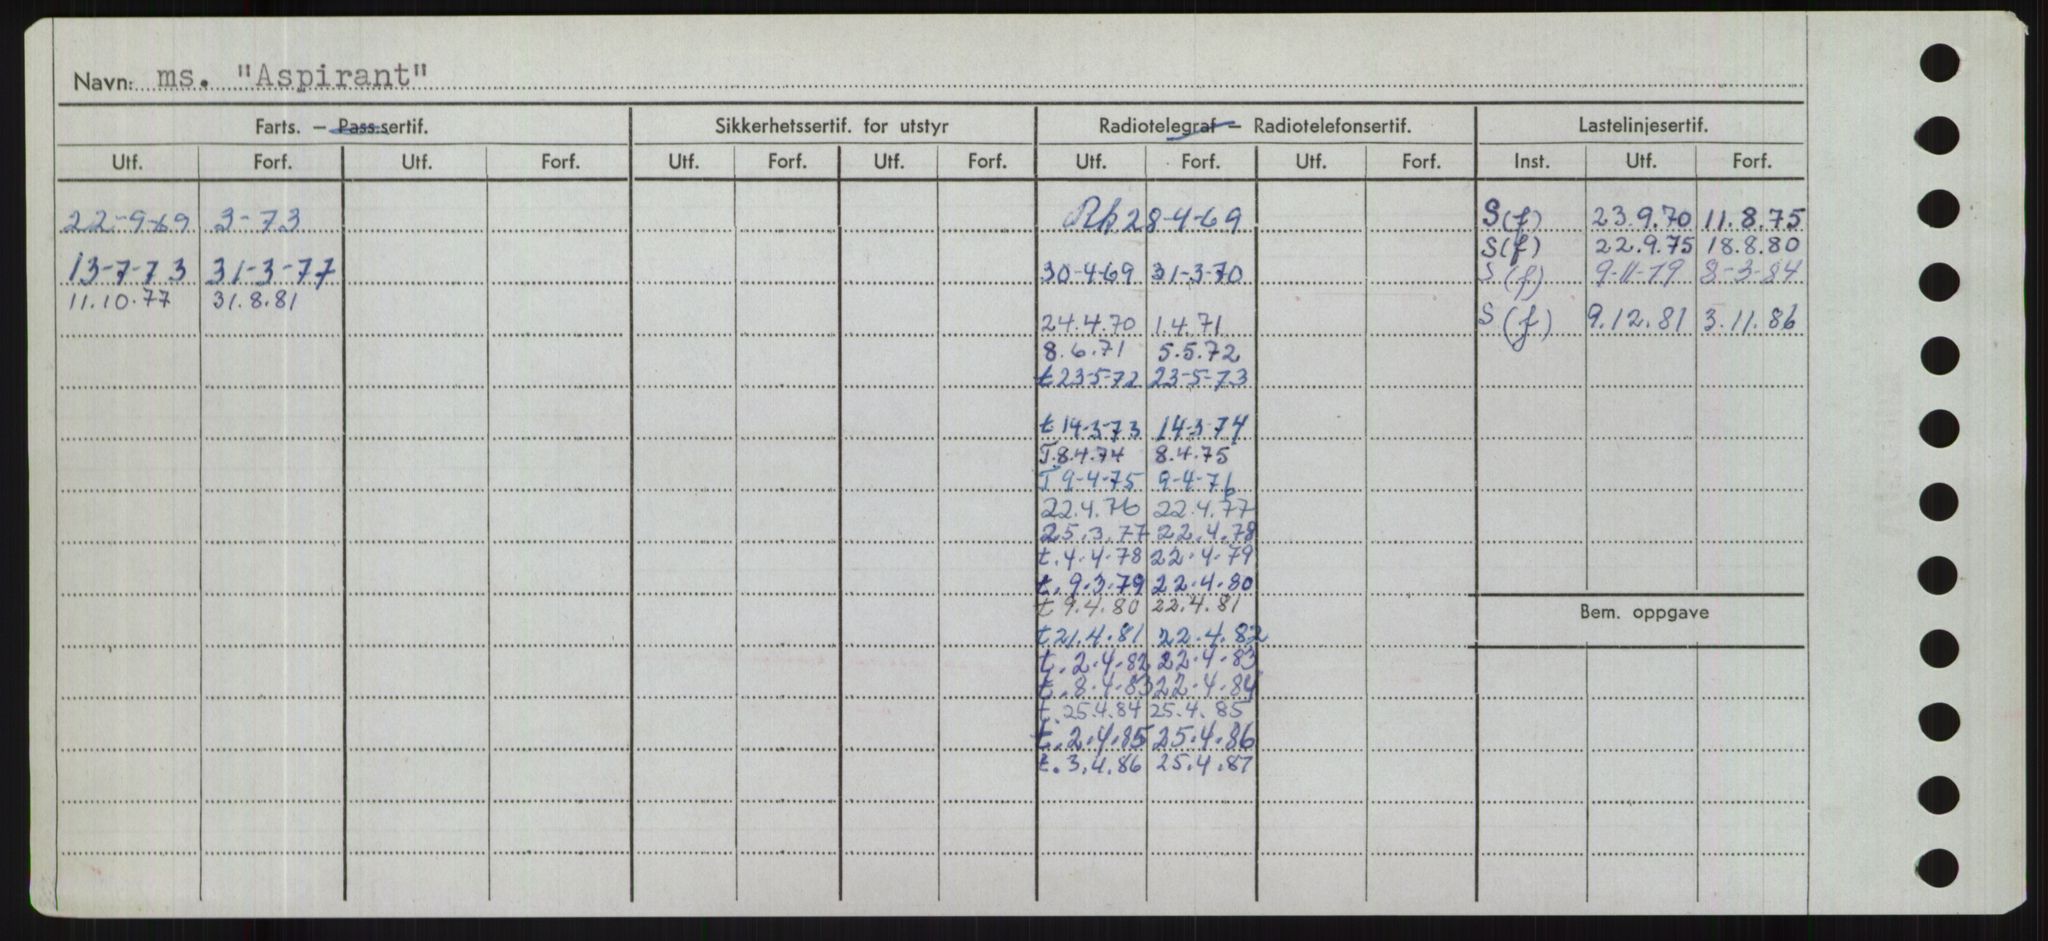 Navn: ms. "Aspirant"
Farts. – Pass.sertif. Sikkerhetssertif. for utstyr Radiotelegraf – Radiotelefonsertif. Lastelinjesertif.
Utf. Forf. Utf. Forf. Utf. Forf. Utf. Forf. Utf. Forf. Utf. Forf. Inst. Utf. Forf.
22-9-69 3-73 28-4-69 S(f) 23.9.70 11.8.75
S(f) 22.9.75 18.8.80
13-7-73 31-3-77 30-4-69 31-3-70 S(f) 9-11-79 8-3-84
11.10.77 31.8.81
24.4.70 1.4.71 S(f) 9.12.81 3.11.86
8.6.71 5.5.72
t 23-5-72 23-5-73
t 14-3-73 14-3-74
T.8.4.74 8.4.75
T 9-4-75 9-4-76
22.4.76 22.4.77
25.3.77 22.4.78
t.4.4.78 22.4.79
t.9.3.79 22.4.80
t 9.4.80 22.4.81
Bem. oppgave
t 21.4.81 22.4.82
t.2.4.82 22.4.83
t.8.4.83 22.4.84
t.25.4.84 25.4.85
t.2.4.85 25.4.86
t.3.4.86 25.4.87